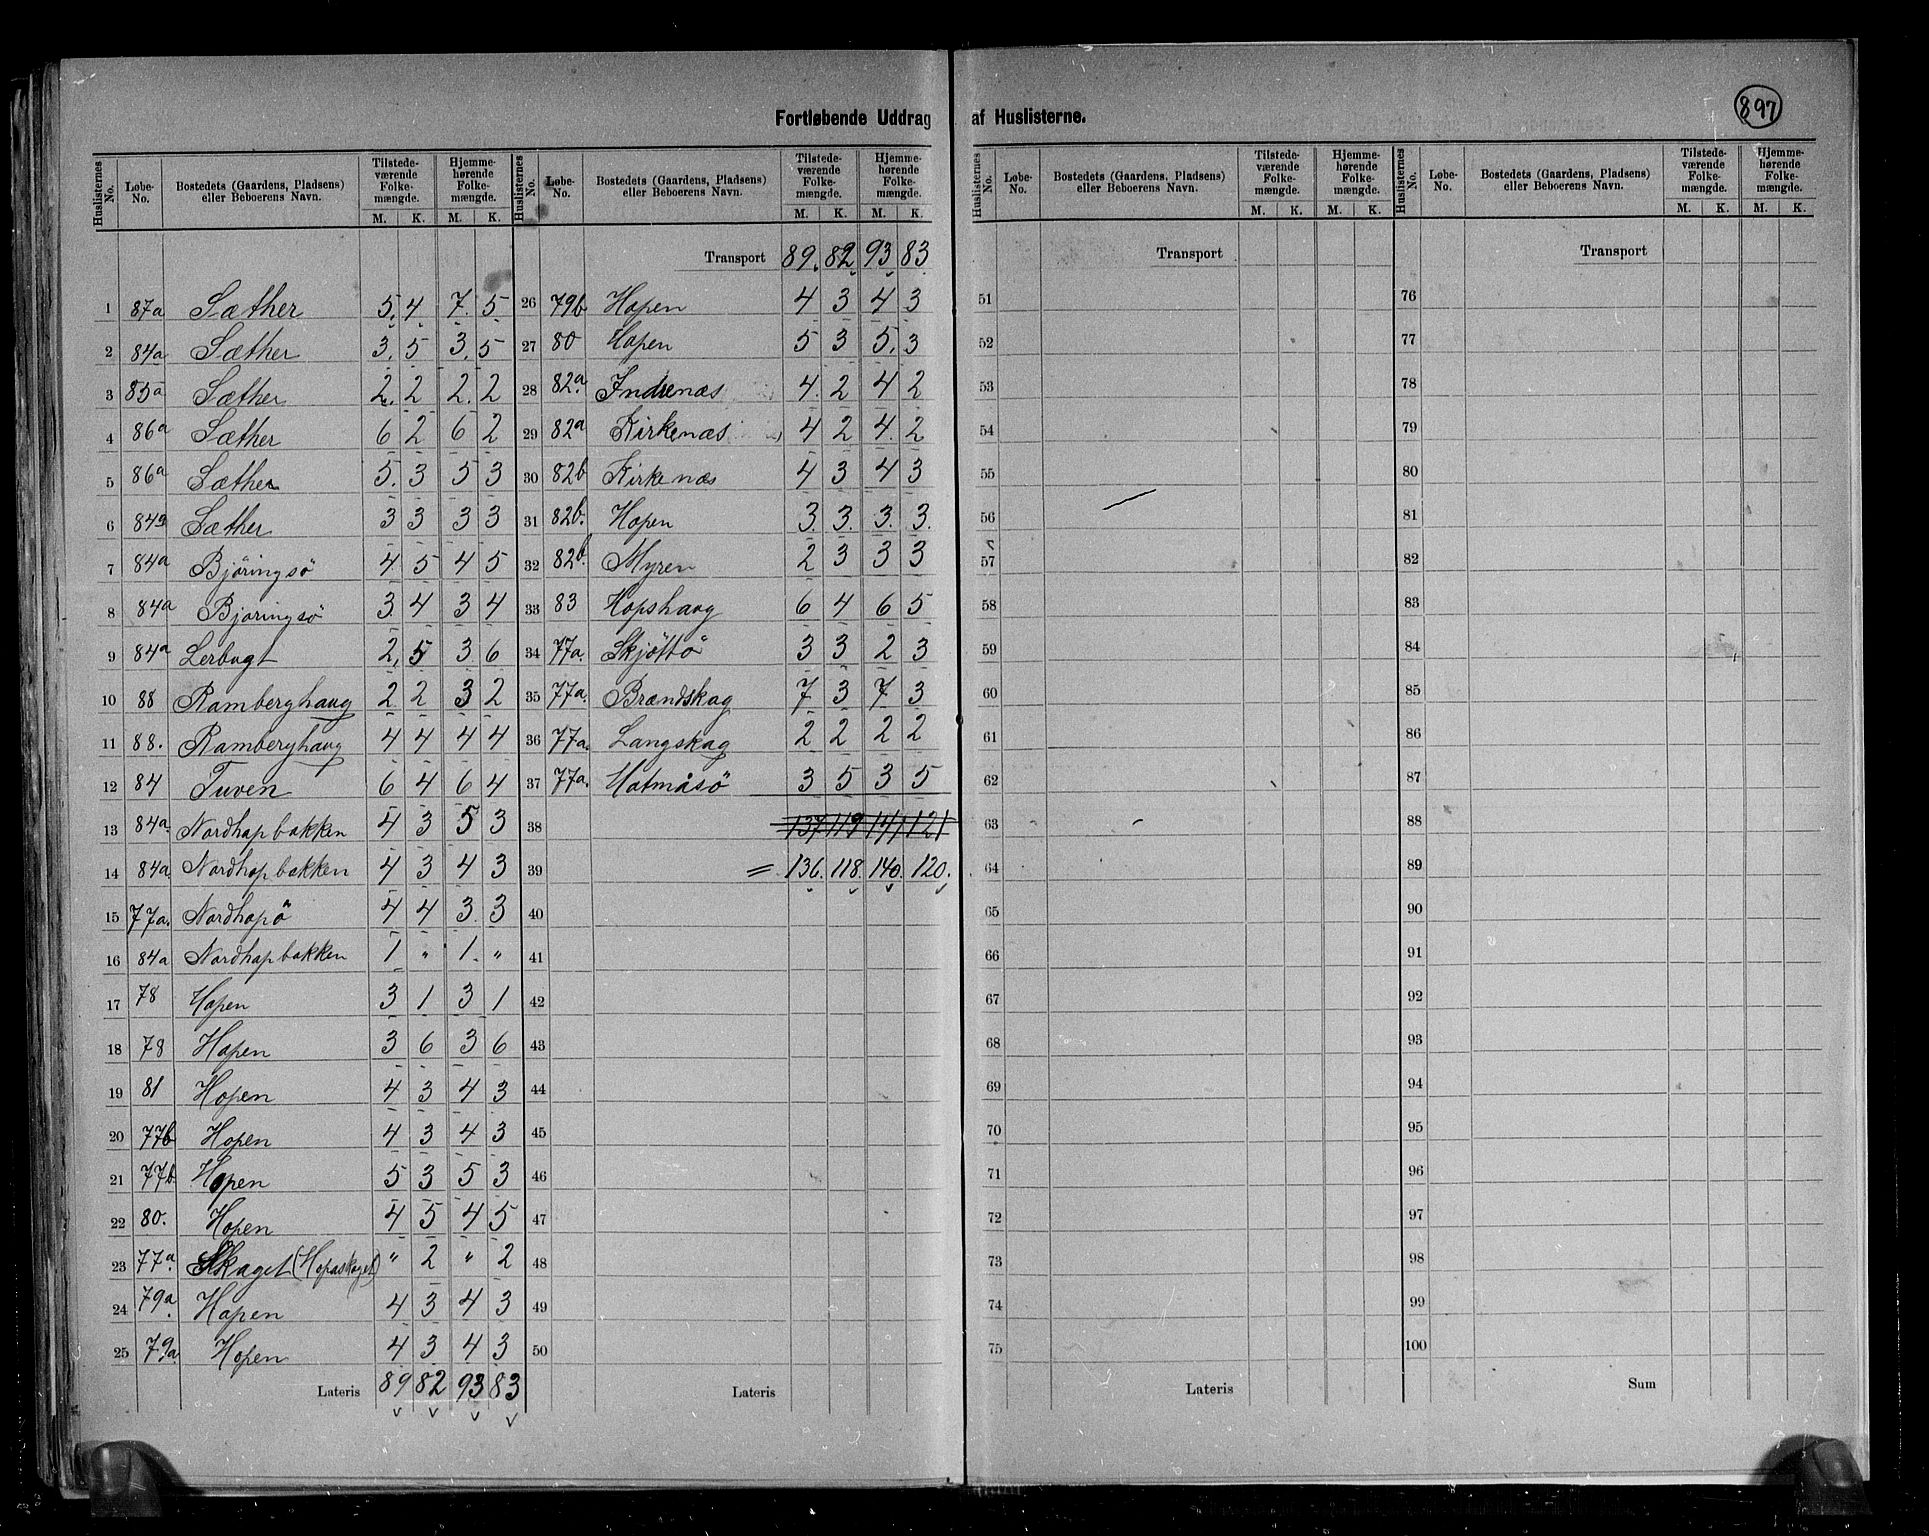 897
Fortløbende Uddrag af Huslisterne.
Huslisternes No. Løbe-No. Bostedets (Gaardens, Pladsens) eller Beboerens Navn. Tilstedeværende Folkemængde. M. K. Hjemmehørende Folkemængde. M. K.
1 87a Sæther 5. 4 7. 5
2 84a Sæther 3. 5 3. 5
3 85a Sæther 2. 2 2. 2
4 86a Sæther 6 2 6 2
5 86a Sæther 5. 3 5 3
6 84a Sæther 3 3 3 3
7 84a Björingsö 4 5 4 5
8 84a Björingsö 3 4 3 4
9 84a Lerbugt 2. 5 3 6
10 88 Ramberghaug 2 2 3 2
11 88. Ramberghaug 4 4 4 4
12 84 Tuven 6 4 6 4
13 84a. Nordhopbakken 4 3 5 3
14 84a. Nordhopbakken 4 3 4 3
15 77a. Nordhopö 4 4 3. 3
16 84a Nordhopbakken 1 " 1. "
17 78 Hopen 3 1 3 1
18 78 Hopen 3 6 3 6
19 81 Hopen 4 3 4 3
20 77b Hopen 4 3 4 3
21 77b Hopen 5 3 5 3
22 80. Hopen 4 5 4 5
23 77a. Skaget (Hopaskaget) " 2 " 2
24 79a. Hopen 4 3 4 3
25 79a. Hopen 4 3 4 3
Lateris 89 82 93 83
Huslisternes No. Løbe-No. Bostedets (Gaardens, Pladsens) eller Beboerens Navn. Tilstedeværende Folkemængde. M. K. Hjemmehørende Folkemængde. M. K.
Transport 89. 82 93 83
26 79b Hopen 4 3 4 3
27 80 Hopen 5 3 5. 3
28 82a. Indrenæs 4. 2 4 2
29 82a Kirkenæs 4 2 4. 2
30 82b Kirkenæs 4 3 4 3
31 82b. Hopen 3. 3. 3. 3.
32 82b. Myren 2 3 3 3
33 83 Hopshaug 6 4 6 5
34 77a. Skjöttö 3 3 2 3
35 77a. Brændskag 7 3 7 3
36 77a. Langskag 2 2 2 2
37 77a. Hatmåsö 3 5 3 5
38 137 119 141 121
39 = 136. 118. 140. 120.
40
41
42
43
44
45
46
47
48
49
50
Lateris
Huslisternes No. Løbe-No. Bostedets (Gaardens, Pladsens) eller Beboerens Navn. Tilstedeværende Folkemængde. M. K. Hjemmehørende Folkemængde. M. K.
Transport
51
52
53
54
55
56
57
58
59
60
61
62
63
64
65
66
67
68
69
70
71
72
73
74
75
Lateris
Huslisternes No. Løbe-No. Bostedets (Gaardens, Pladsens) eller Beboerens Navn. Tilstedeværende Folkemængde. M. K. Hjemmehørende Folkemængde. M. K.
Transport
76
77
78
79
80
81
82
83
84
85
86
87
88
89
90
91
92
93
94
95
96
97
98
99
100
Sum